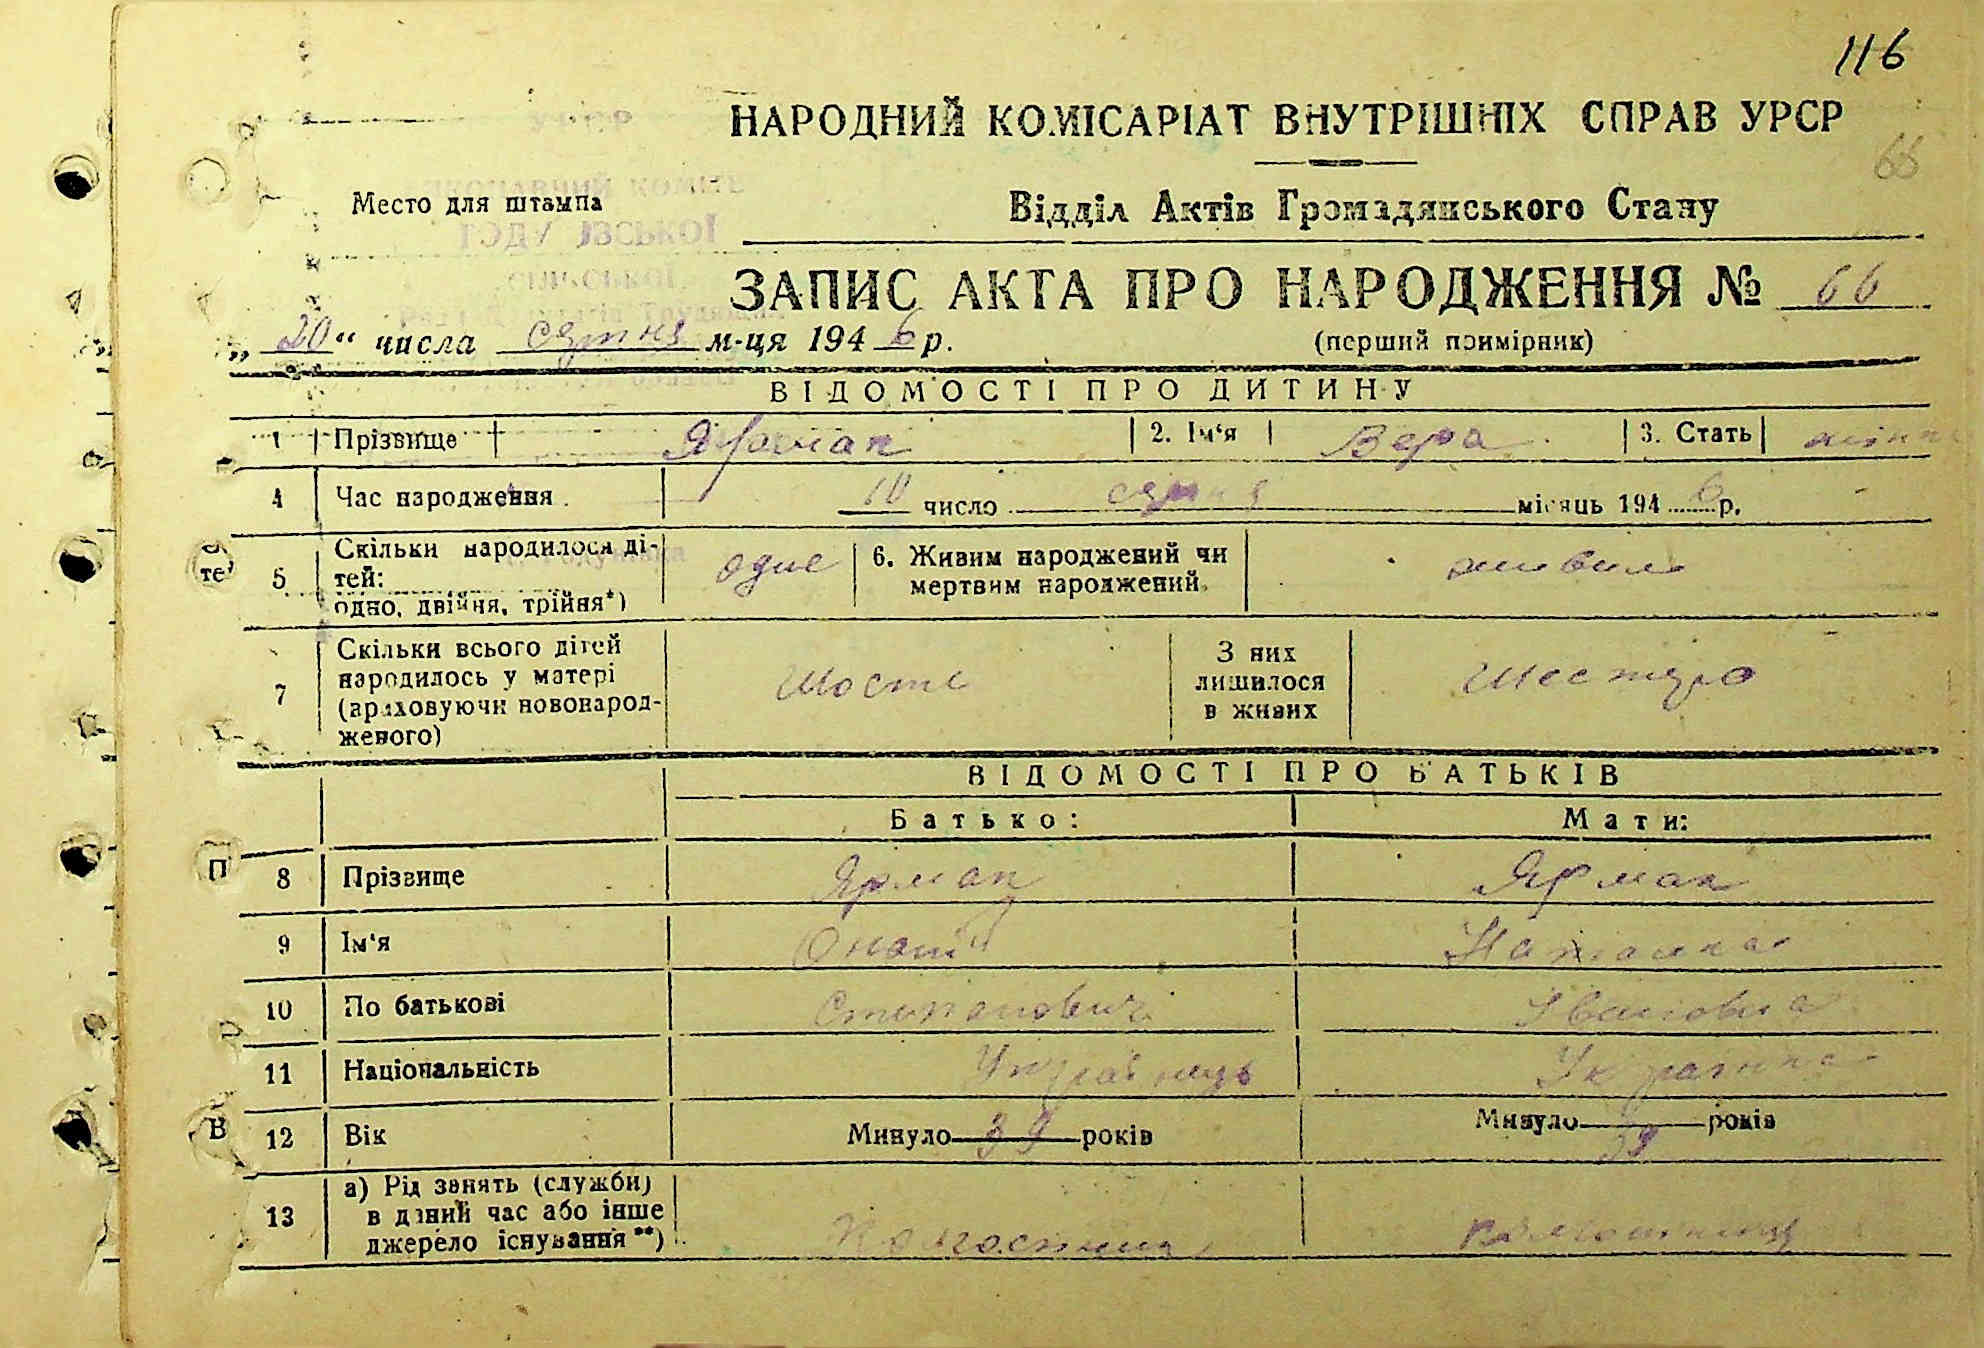 116
НАРОДНИЙ КОМІСАРІАТ ВНУТРІШНІХ СПРАВ УРСР
66
Место для штампа
Відділ Актів Громадянського Стану
ЗАПИС АКТА ПРО НАРОДЖЕННЯ № 66
„ 20 “ числа серпня м-ця 1946 р.
(перший примірник)
ВІДОМОСТІ ПРО ДИТИНУ
1 Прізвище Ярмак 2. Ім‘я Вера 3. Стать жіноч
4 Час народження 10 число серпня місяць 1946 р.
5 Скільки народилося дітей: одно, двійня, трійня*) одне 6. Живим народжений чи мертвим народжений. живим
7 Скільки всього дітей народилось у матері (враховуючи новонародженого) Шосте З них лишилося в живих Шестеро
ВІДОМОСТІ ПРО БАТЬКІВ
Батько: Мати:
8 Прізвище Ярмак Ярмак
9 Ім‘я Наталка
10 По батькові Степанович Івановна
11 Національність Українець Українка
12 Вік Минуло 39 років Минуло 39 років
13 а) Рід занять (служби) в даний час або інше джерело існування**) Колгоспник колгоспниця